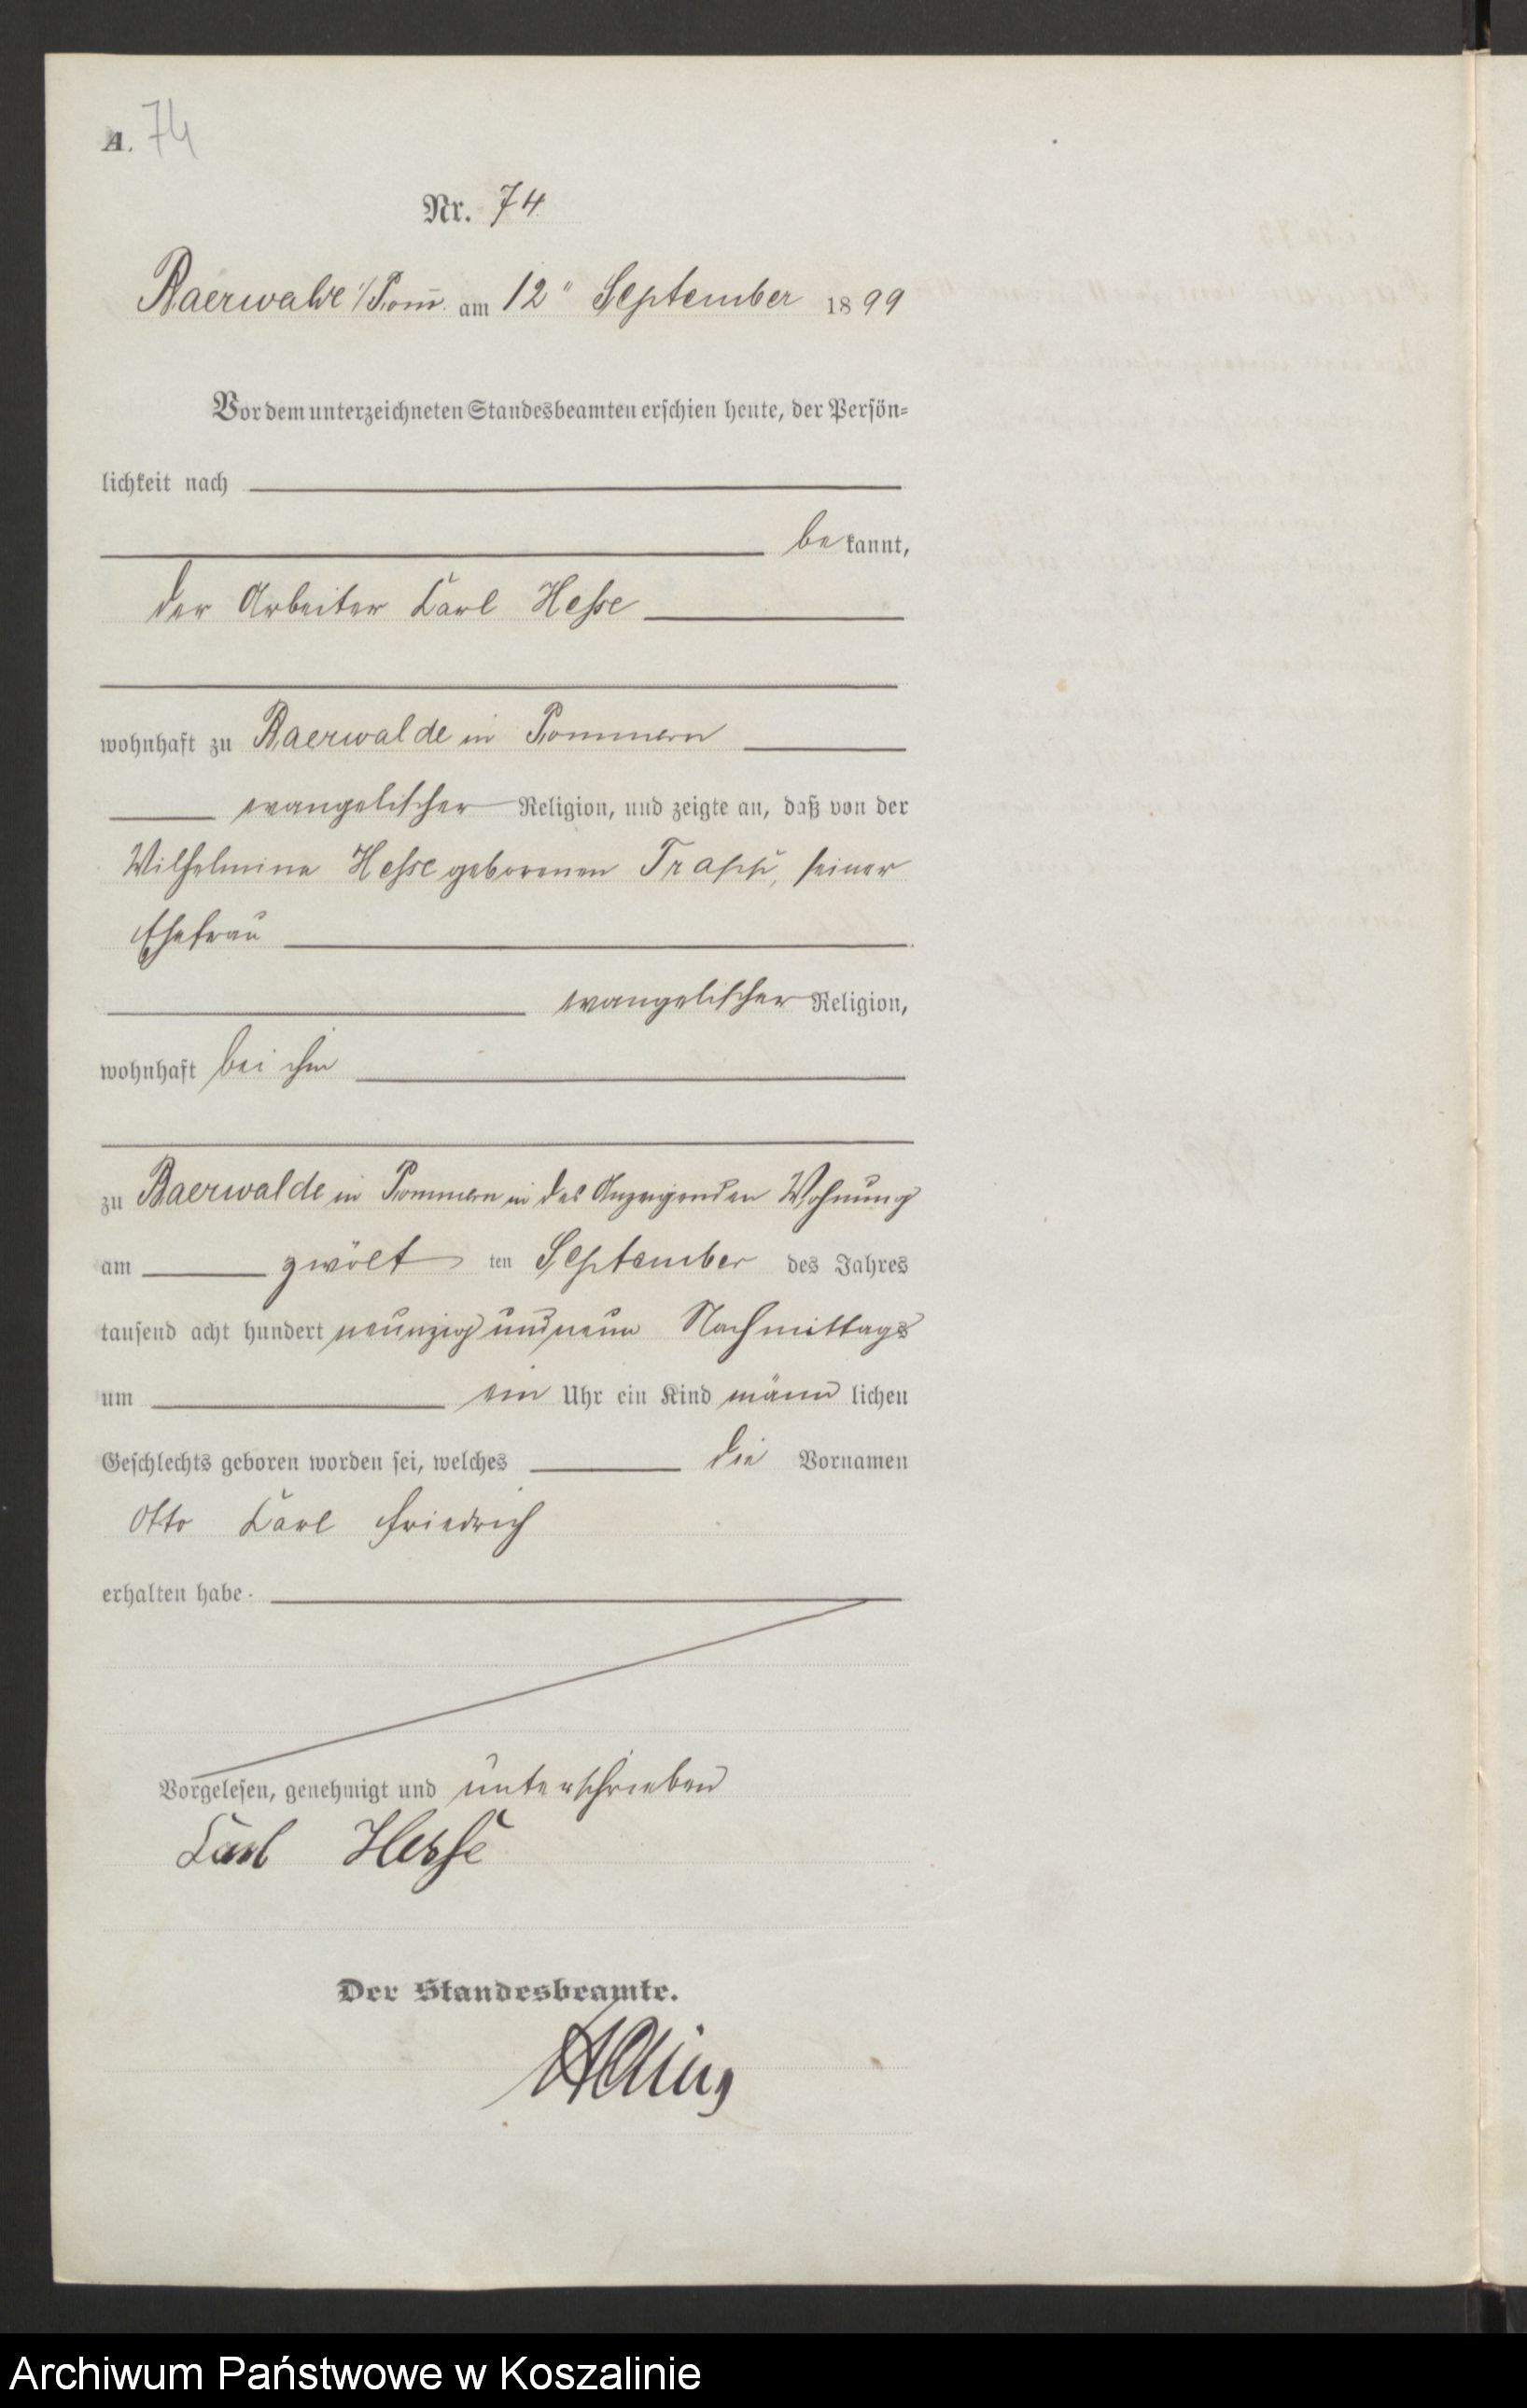 A. 74
Nr. 74
Baerwalde i/Pom̄. am 12ⁿ September 1899
Vor dem unterzeichneten Standesbeamten erschien heute, der Persön-
lichkeit nach
be kannt,
der Arbeiter Carl Hesse
wohnhaft zu Baerwalde in Pommern
evangelischer Religion, und zeigte an, daß von der
Wilhelmine Hesse geborenen Trapp, seiner
Ehefrau
evangelischer Religion,
wohnhaft bei ihm
zu Baerwalde in Pommern in des Anzeigenden Wohnung
am zwölf ten September des Jahres
tausend acht hundert neunzig und neun Nachmittags
um ein Uhr ein Kind männ lichen
Geschlechts geboren worden sei, welches die Vornamen
Otto Carl Friedrich
erhalten habe.
Vorgelesen, genehmigt und unterschrieben
Carl Hesse
Der Standesbeamte.
Archiwum Państwowe w Koszalinie